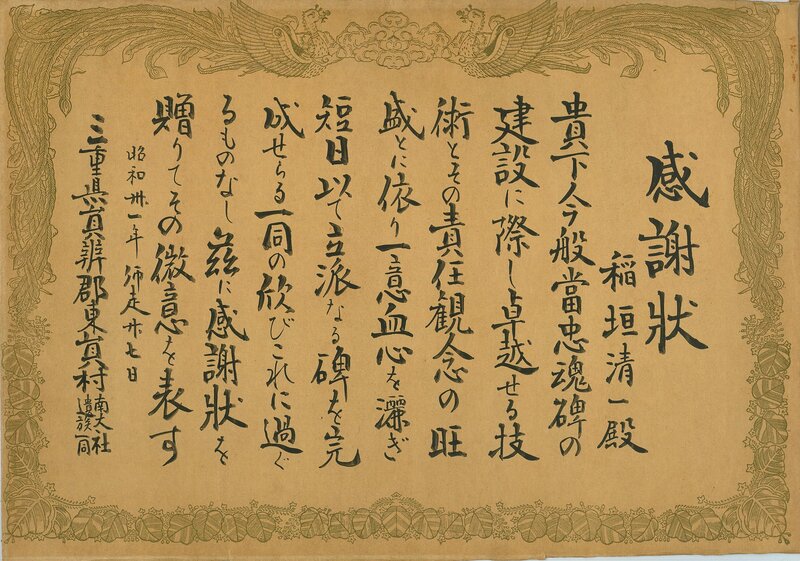 感謝狀
稲垣清一殿
貴下今般當忠魂碑の
建設に際し卓越せる技
術とその責任観念の旺
盛とに依り一意血心を灑ぎ
短日以て立派なる碑を完
成せらる一同の欣びこれに過ぐ
るものなし茲に感謝狀を
贈りてその微意を表す
昭和卅一年師走廿七日
三重県員辨郡東員村
南大社
遺族一同